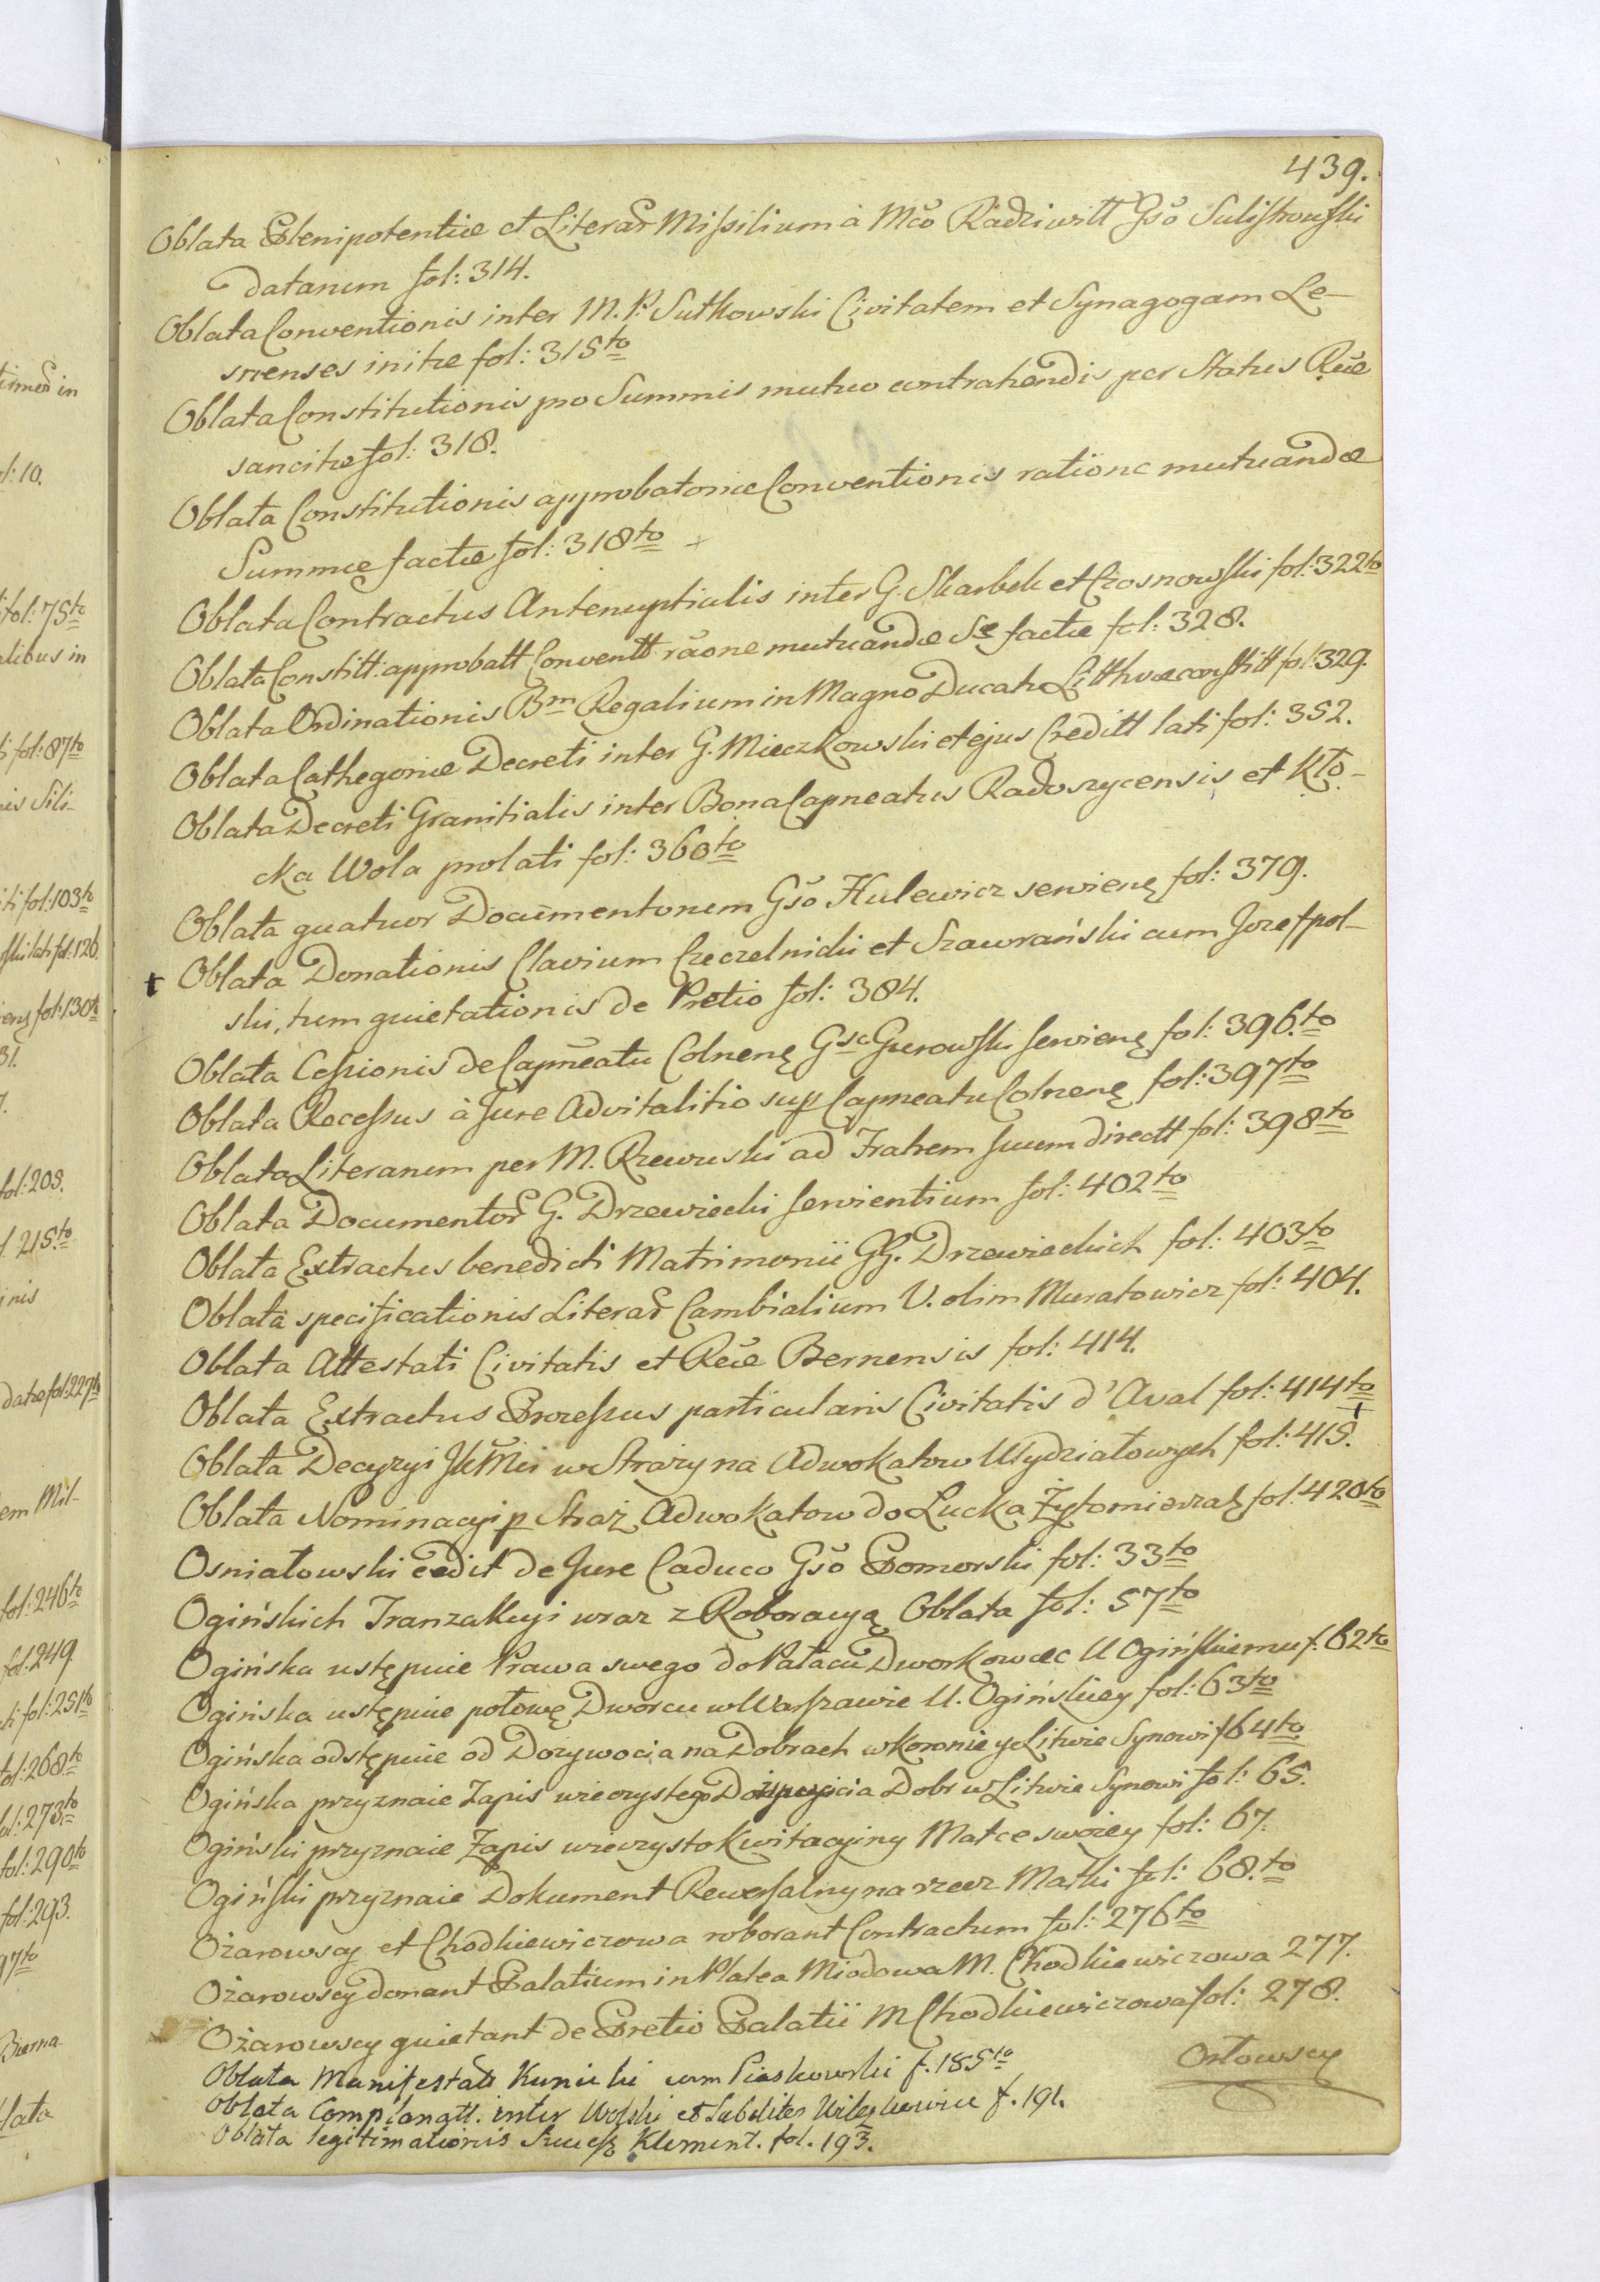 439.
Oblata Plenipotentiæ et Literar Missilium à Mco Radziwiłł Gso Sulistrowski
datarum fol: 314.
Oblata Conventionis inter M. P. Sułkowski Civitatem et Synagogam Le-
snenses initæ fol: 315to
Oblata Constitutionis pro Summis mutuo contrahendis per Status Rcæ
sancitæ fol: 318.
Oblata Constitutionis approbatoriæ Conventionis ratione mutuandæ
Summæ factæ fol: 318to
Oblata Contractus Antenuptialis inter G. Skarbek et Czosnowski fol: 322to
Oblata Constitt: approbatt Conventt raone mutuandæ Sæ factæ fol: 328.
Oblata Ordinationis Bm Regalium in Magno Ducatu Litthvæ constitt fol: 329.
Oblata Cathegoriæ Decreti inter G. Mieczkowski et ejus Creditt lati fol: 352.
Oblata Decreti Granitialis inter Bona Capneatus Radoszycensis et Kto-
cka Wola prolati fol: 360to
Oblata quatuor Documentorum Gso Hulewicz servienę fol: 379.
+ Oblata Donationis Clavium Czeczelnicki et Szawrański cum Jozefpol-
ski, tum quietationis de Pretio fol: 384.
Oblata Cessionis de Capneatu Colnenę Gsc Gurowski servienę fol: 396.to
Oblata Recessus à Jure Advitalitio sup Capneatu Colnenę fol: 397to
Oblata Literarum per M. Rzewuski ad Fratrem suum directt fol: 398to
Oblata Documentor G. Drzewiecki servientium fol: 402to
Oblata Extractus benedicti Matrimonii GG. Drzewieckich fol: 403to
Oblata specificationis Literar Cambialium V. olim Muratowicz fol: 404.
Oblata Attestati Civitatis et Rcæ Bernensis fol: 414.
Oblata Extractus Processus particularis Civitatis d'Aval fol: 414to
Oblata Decyzyi JKMci w Straży na Adwokatow Wydziałowych fol: 415. +
Oblata Nominacyi p Straż Adwokatow do Łucka Żytomierza fol: 420to
Osniałowski cedit de Jure Caduco Gso Pomorski fol: 33to
Ogińskich Tranzakcyi wraz z Roboracyą Oblata fol: 57to
Ogińska ustępuie Prawa swego do Pałacu Dworkow etc W Ogińskiemu f. 62to
Ogińska ustępuie połowę Dworcu w Warszawie W. Ogińskiey fol: 63to
Ogińska odstępuie od Dozywocia na Dobrach w Koronie y Litwie Synowi f 64to
Ogińska przyznaie Zapis wieczystego Dożywocia Dobr w Litwie Synowi fol: 65.
Ogiński przyznaie Zapis wieczysto Kwitacyiny Matce swoiey fol: 67.
Ogiński przyznaie Dokument Rewersalny na rzecz Matki fol: 68.to
Ożarowscy et Chodkiewiczowa roborant Contractum fol: 276to
Ożarowscy donant Palatium in Platea Miodowa M. Chodkiewiczowa 277.
Ożarowscy quietant de Pretio Palatii M Chodkiewiczowa fol: 278.
Oblata Manifestatt Kunicki cum Piaskowski f. 185to
Oblata Complanatt. inter Wolski et f. 191.
Oblata legitimationis Klement. fol. 193.
Orłowscy